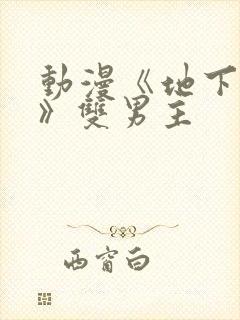 動漫《地下
》雙男主
西窗白